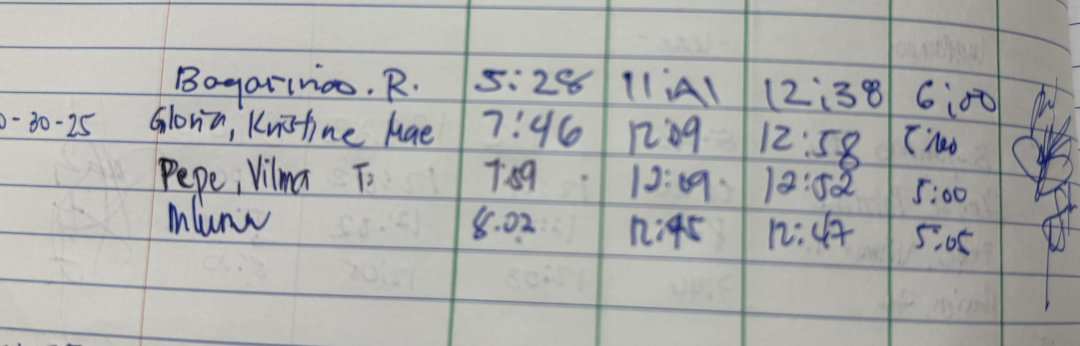 Bagarinao. R. 5:28 11:41 12:38 6:00
0-30-25 Gloria, Kristine Mae 7:46 12:09 12:58 5:00
Pepe, Vilma T. 7:59 12:09 12:52 5:00
8.02 12:45 12:47 5:05